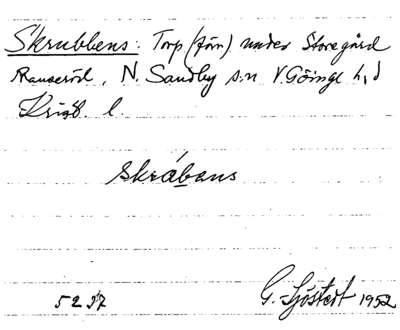 Skrubbens: Torp (förr) under Storegård
Ranseröd, N. Sandby s:n V. Göinge h,d
Krist. l.
skrábans
5237
G. Sjöstedt 1952